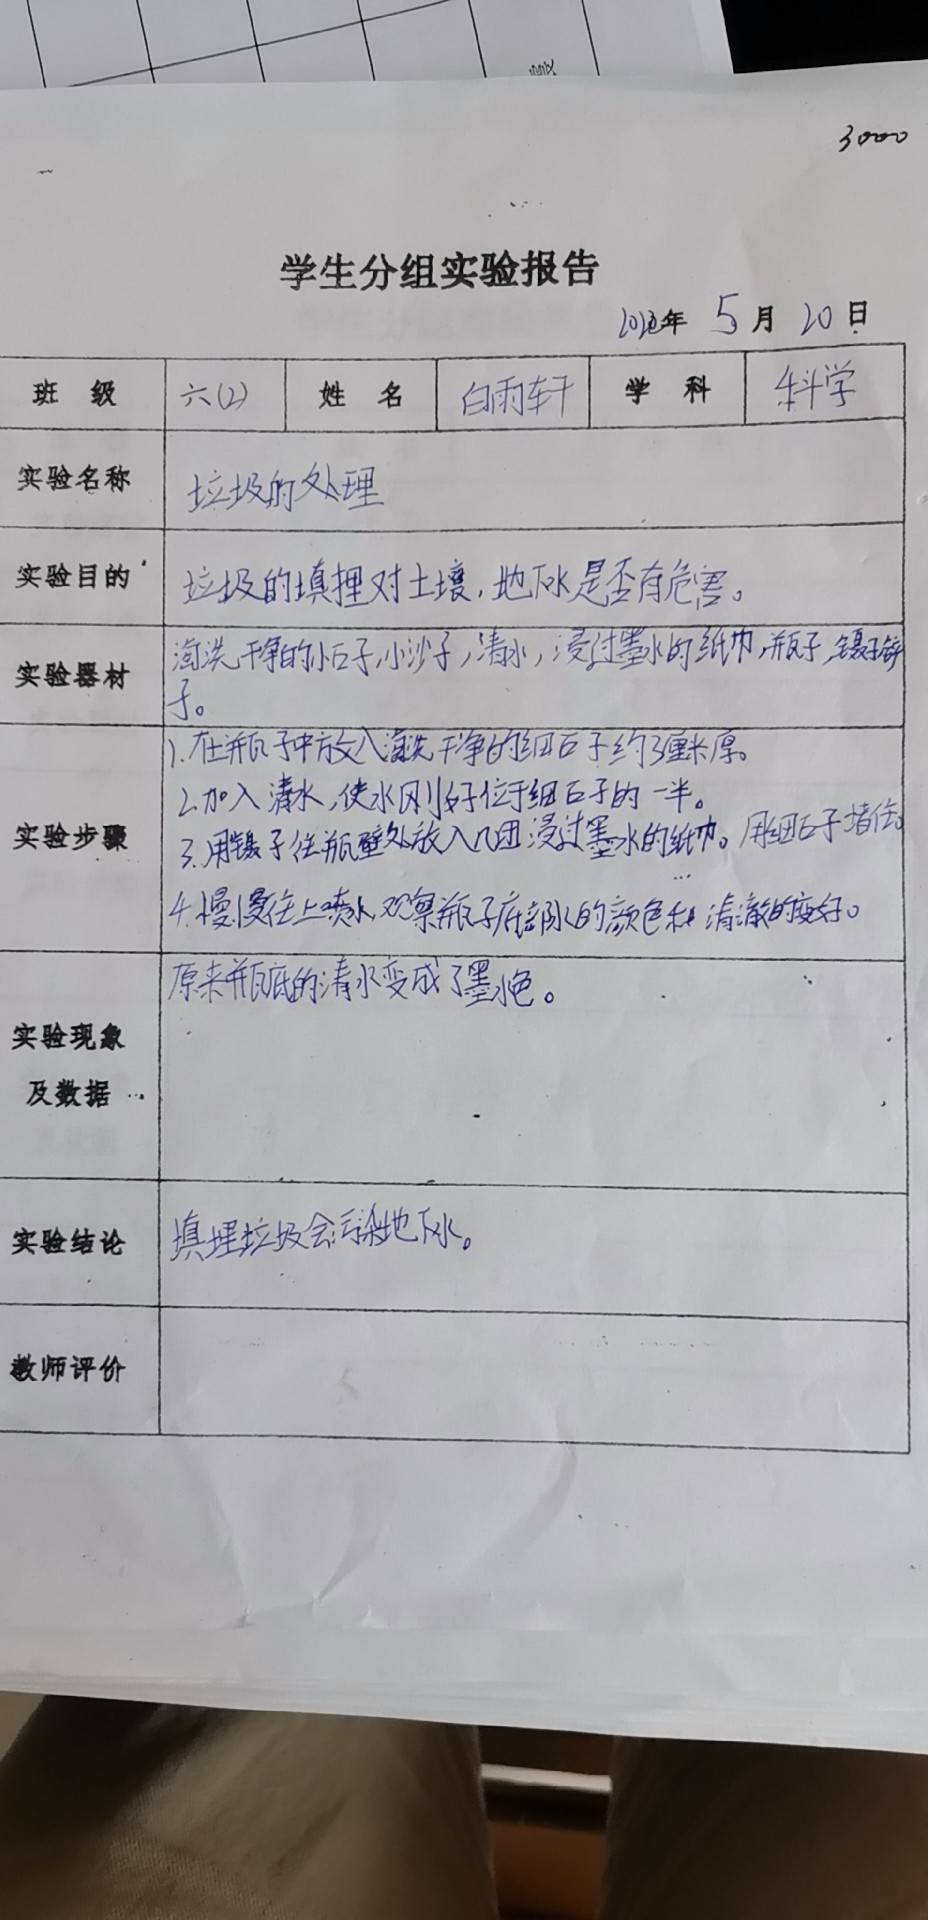 3000
学生分组实验报告
年 5月20日
班 级 六(2) 姓 名 白雨轩 学 科 科学
实验名称 垃圾的处理
实验目的 垃圾的填埋对土壤,地下水是否有危害。
实验器材 淘洗干净的小石子,小沙子,清水,浸过墨水的纸巾,瓶子,镊子
子。
实验步骤
1.在瓶子中放入淘洗干净的细石子约3厘米厚。
2.加入清水,使水刚好位于细石子的一半。
3.用镊子往瓶壁处放入几团浸过墨水的纸巾。用细石子堵住。
4.慢慢往上喷水,观察瓶子底部水的颜色和清澈的变好。
实验现象
及数据
原来瓶底的清水变成了墨水色。
实验结论 填埋垃圾会污染地下水。
教师评价